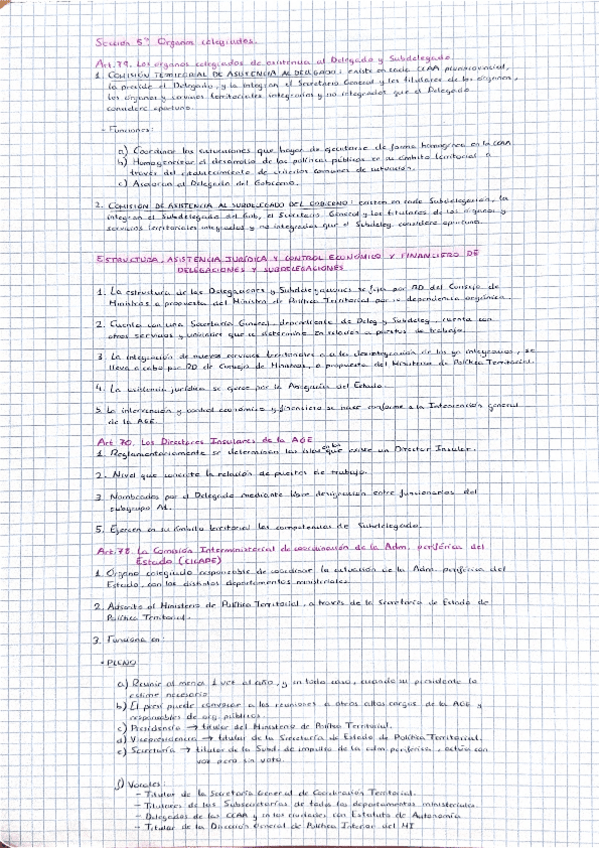 Sección 5ª Organos colegiados.
Art. 79. Los órganos colegiados de asistencia al Delegado y Subdelegado
1. COMISIÓN TERRITORIAL DE ASISTENCIA AL DELEGADO: existe en cada CCAA pluriprovincial,
la preside el Delegado, y la integran el Secretario General y los titulares de los órganos,
los órganos y servicios territoriales integrados y no integrados que el Delegado
considere oportuno.
- Funciones:
a) Coordinar las actuaciones que hayan de ejecutarse de forma homogénea en la CCAA
b) Homogeneizar el desarrollo de las políticas públicas en su ámbito territorial a
través del establecimiento de criterios comunes de actuación.
c) Asesorar al Delegado del Gobierno.
2. COMISIÓN DE ASISTENCIA AL SUBDELEGADO DEL GOBIERNO: existen en cada Subdelegación, la
integran el Subdelegado del Gob, el Secretario General y los titulares de los órganos y
servicios territoriales integrados y no integrados que el Subdeleg. considere oportuno.
ESTRUCTURA, ASISTENCIA JURÍDICA Y CONTROL ECONÓMICO Y FINANCIERO DE
DELEGACIONES Y SUBDELEGACIONES
1. La estructura de las Delegaciones y Subdelegaciones se fija por RD del Consejo de
Ministros a propuesta del Ministro de Política Territorial por su dependencia orgánica.
2. Cuenta con una Secretaría General, dependiente de Deleg y Subdeleg, cuenta con
otros servicios y unidades que se determine en relación a puestos de trabajo.
3. La integración de nuevos servicios territoriales o a la desintegración de los ya integrados, se
lleva a cabo por RD de Consejo de Ministros, a propuesta del Ministerio de Política Territorial.
4. La asistencia jurídica se ejerce por la Abogacía del Estado.
5. La intervención y control económico y financiero se hace conforme a la Intervención general
de la AGE.
Art. 70. Los Directores Insulares de la AGE
1. Reglamentariamente se determinan las islas en las que existe un Director Insular.
2. Nivel que concrete la relación de puestos de trabajo.
3. Nombrados por el Delegado mediante libre designación entre funcionarios del
subgrupo A1.
5. Ejercen en su ámbito territorial las competencias de Subdelegado.
Art. 78. La Comisión Interministerial de coordinación de la Adm. periférica del
Estado (CICAPE)
1. Órgano colegiado responsable de coordinar la actuación de la Adm. periférica del
Estado, con los distintos departamentos ministeriales.
2. Adscrito al Ministerio de Política Territorial, a través de la Secretaría de Estado de
Política Territorial.
3. Funciona en:
• PLENO
a) Reunir al menos 1 vez al año, y en todo caso, cuando su presidente lo
estime necesario
b) El presi puede convocar a las reuniones a otros altos cargos de la AGE y
responsables de org. públicos.
c) Presidencia → titular del Ministerio de Política Territorial.
d) Vicepresidencia → titular de la Secretaría de Estado de Política Territorial.
e) Secretaría → titular de la Subd. de impulso de la adm periférica, actúa con
voz pero sin voto.
f) Vocales:
- Titular de la Secretaría General de Coordinación Territorial.
- Titulares de las Subsecretarías de todos los departamentos ministeriales.
- Delegados de las CCAA y en las ciudades con Estatuto de Autonomía
- Titular de la Dirección General de Política Interior del MI